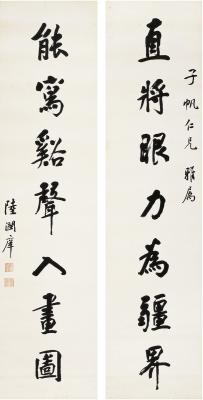 子帆仁兄雅屬
直將眼力為疆界
能寫谿聲入畫圖
陸潤庠